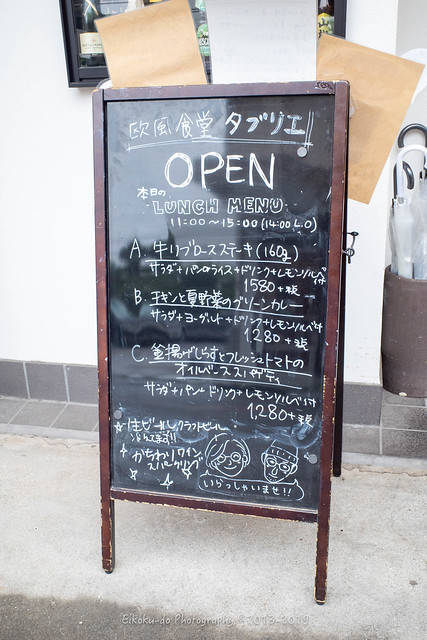 欧風食堂 タブリエ!!
OPEN
本日の
LUNCH MENU
11:00〜15:00 (14:00 L.O)
A. 牛リブロースステーキ(160g)
サラダ+パンorライス+ドリンク+レモンソルベ付
1580+税
B. チキンと夏野菜のグリーンカレー
サラダ+ヨーグルト+ドリンク+レモンソルベ付
1,280+税
C. 釜揚げしらすとフレッシュトマトの
オイルベーススパゲティ
サラダ+パン+ドリンク+レモンソルベ付
1,280+税
☆生ビール クラフトビール
かちわりワイン
スパークリング
いらっしゃいませ!!
Eikoku-do Photography © 2013-2019